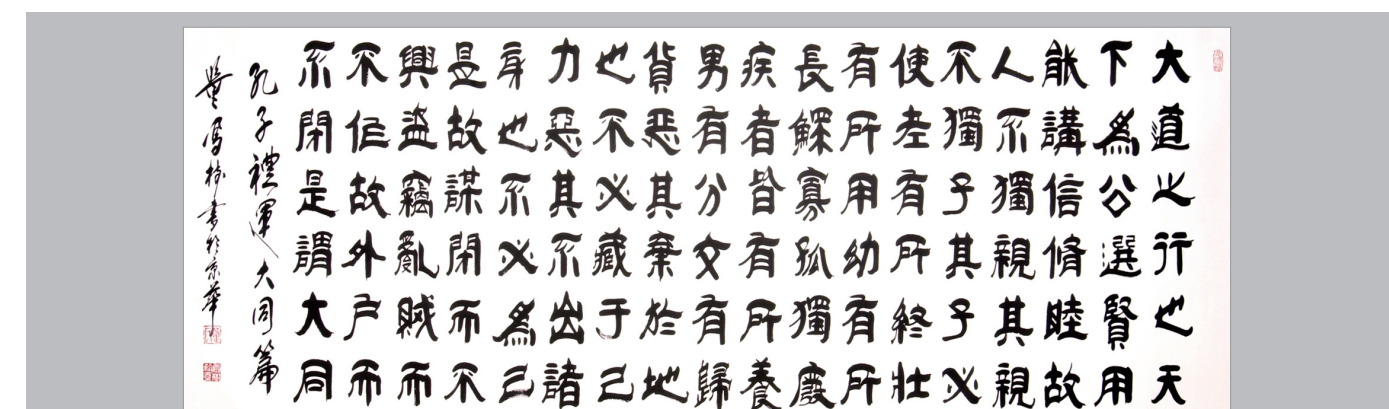 大道之行也天
下為公選賢用
能講信脩睦故
人不獨親其親
不獨子其子必
使老有所終壯
有所用幼有所
長鰥寡孤獨廢
疾者皆有所養
男有分女有歸
貨惡其棄於地
也不必藏于己
力惡其不出諸
身也不必為己
是故謀閉而不
興盜竊亂賊而
不作故外戶而
不閉是謂大同
孔子禮運大同篇
書於京華